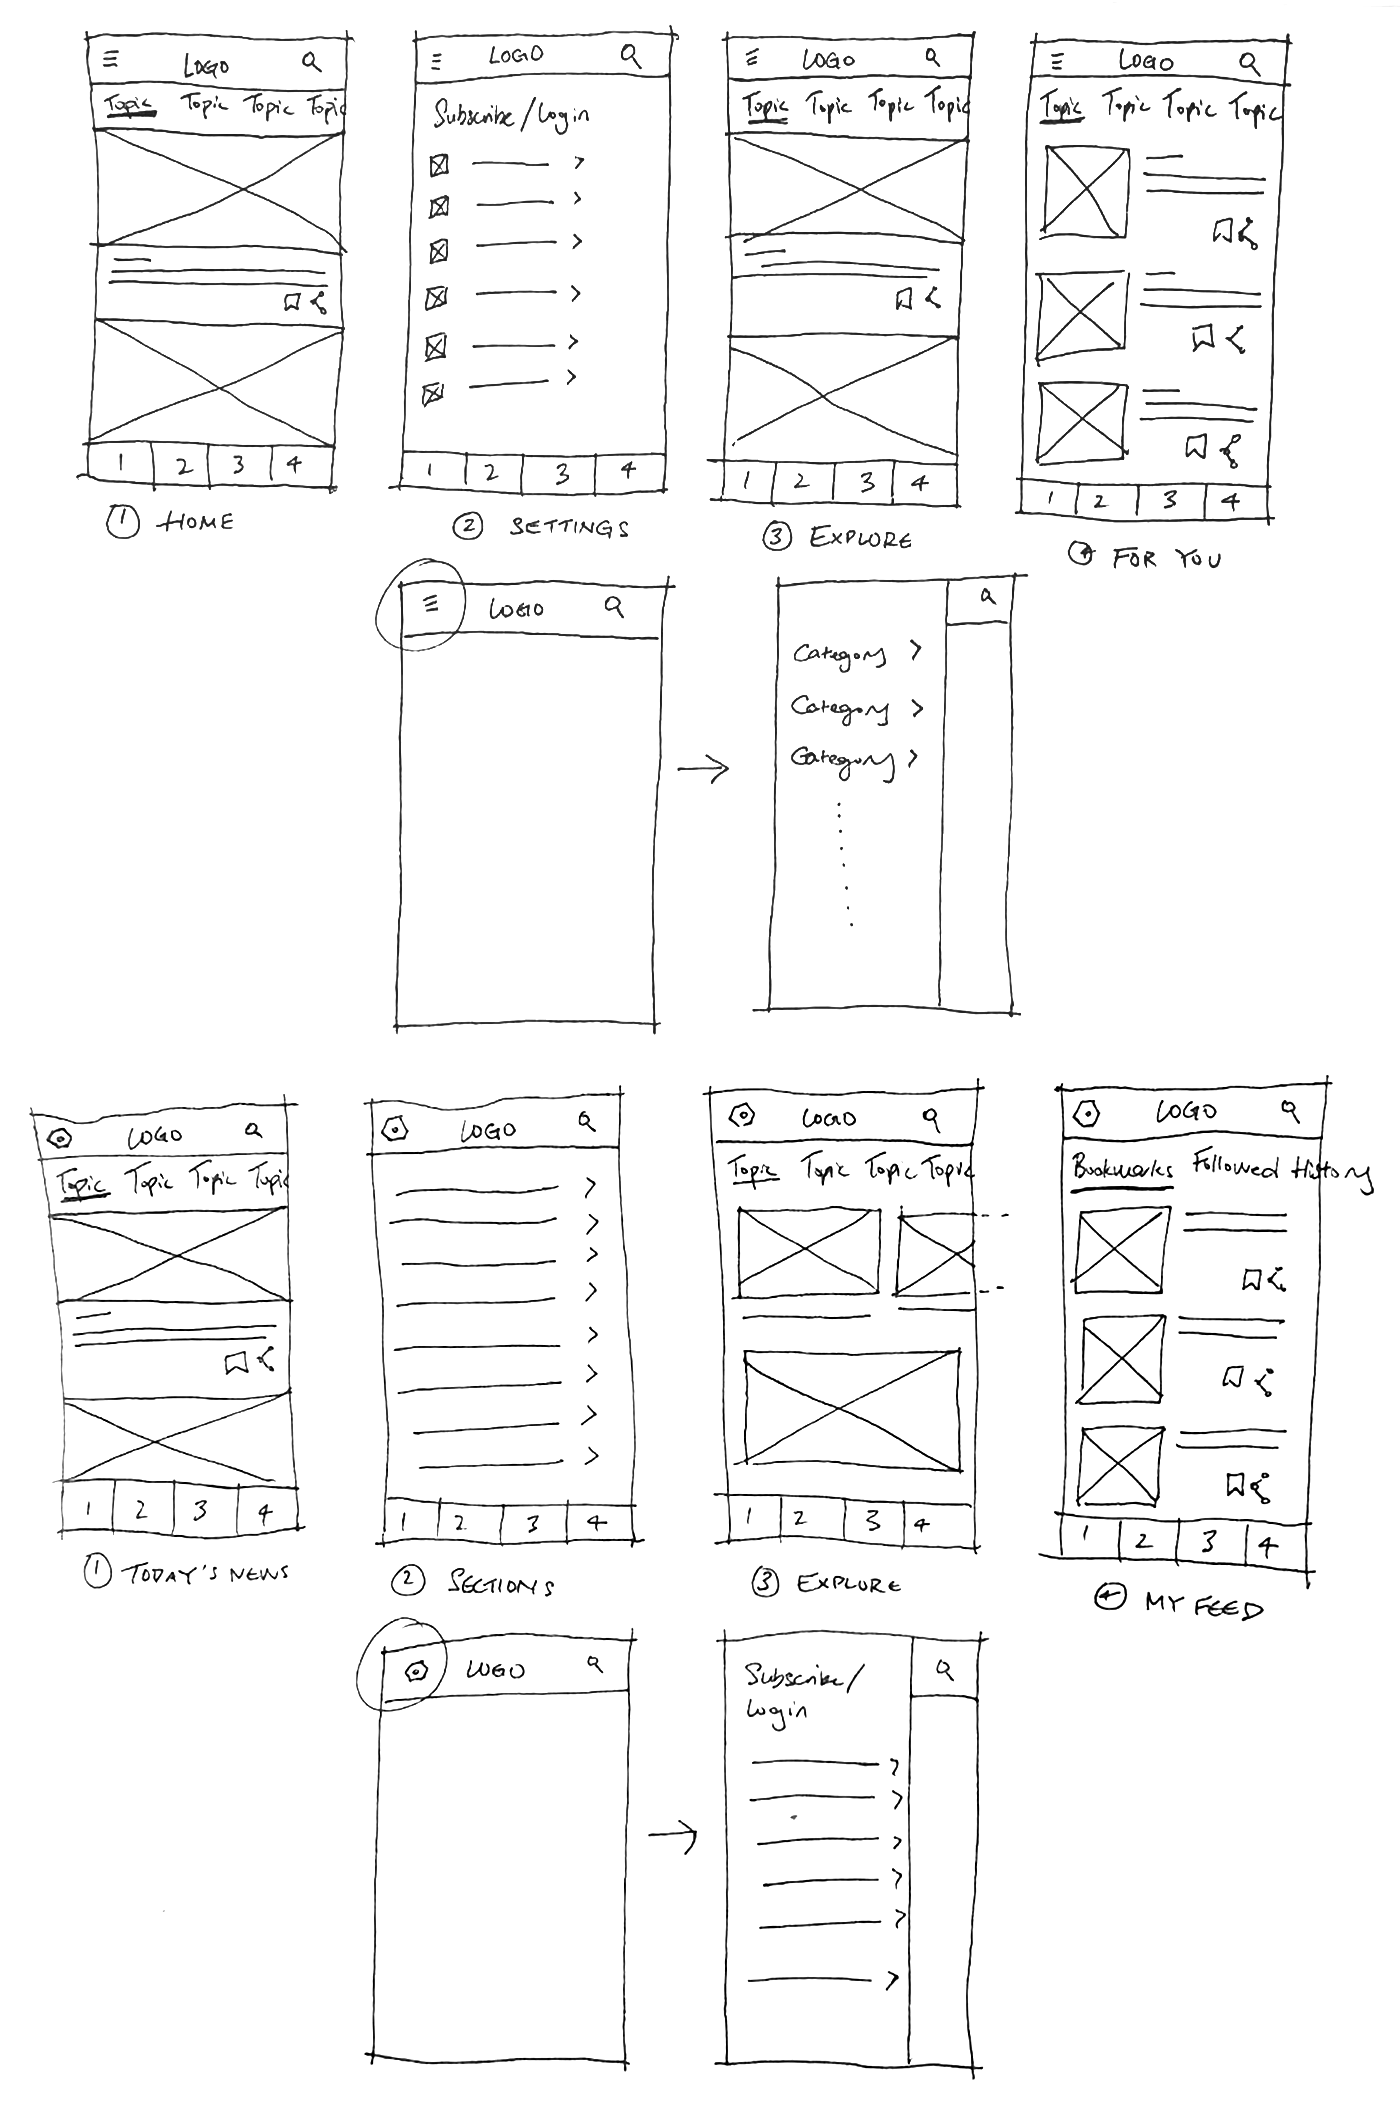 LOGO
Topic Topic Topic Topic
1 2 3 4
① HOME
LOGO
Subscribe/Login
1 2 3 4
② SETTINGS
LOGO
Topic Topic Topic Topic
1 2 3 4
③ EXPLORE
LOGO
Topic Topic Topic Topic
1 2 3 4
④ FOR YOU
LOGO
Category >
Category >
Category >
LOGO
Topic Topic Topic Topic
1 2 3 4
① TODAY'S NEWS
LOGO
1 2 3 4
② SECTIONS
LOGO
Topic Topic Topic Topic
1 2 3 4
③ EXPLORE
LOGO
Bookmarks Followed History
1 2 3 4
④ MY FEED
LOGO
Subscribe/
Login